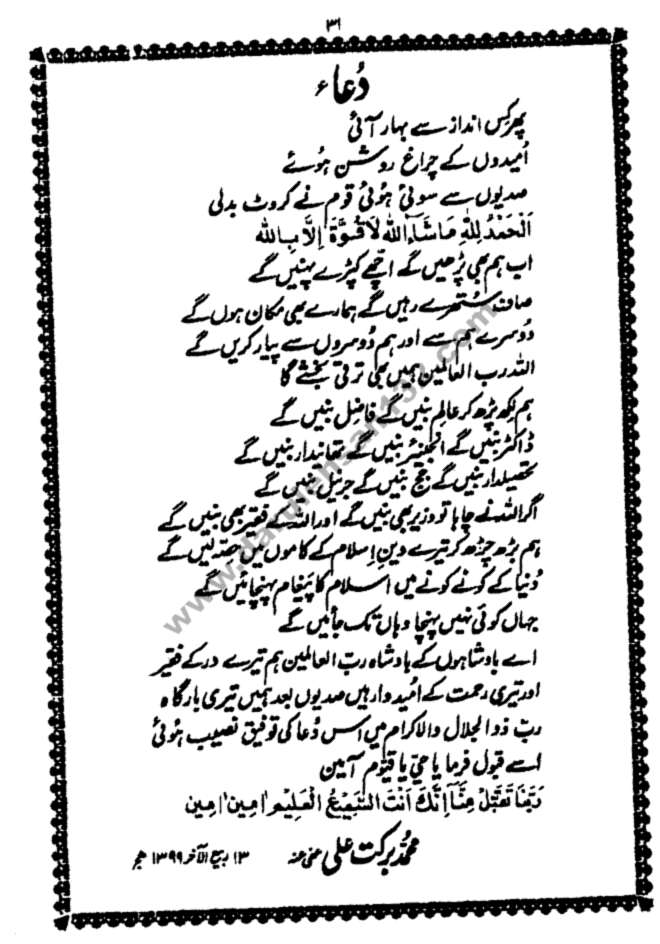 ٣١
دُعاء
پھر کِس انداز سے بہار آئی
اُمیدوں کے چراغ روشن ہُوئے
صدیوں سے سوئی ہُوئی قوم نے کروٹ بدلی
اَلْحَمْدُ لِلّٰهِ مَاشَآءَ اللّٰه لَا قُوَّةَ اِلَّا بِاللّٰه
اب ہم بھی پڑھیں گے اچھے کپڑے پہنیں گے
صاف سُتھرے رہیں گے ہمارے بھی مکان ہوں گے
دُوسرے ہم سے اور ہم دُوسروں سے پیار کریں گے
اللہ رب العالمین ہمیں بھی ترقی بخشے گا
ہم لکھ پڑھ کر عالِم بنیں گے فاضِل بنیں گے
ڈاکٹر بنیں گے انجنیئر بنیں گے تھانیدار بنیں گے
تحصیلدار بنیں گے جج بنیں گے جرنیل بنیں گے
اگر اللہ نے چاہا تو وزیر بھی بنیں گے اور اللہ کے فقیر بھی بنیں گے
ہم بڑھ چڑھ کر تیرے دینِ اِسلام کے کاموں میں حصّہ لیں گے
دُنیا کے کونے کونے میں اسلام کا پَیغام پہنچائیں گے
جہاں کوئی نہیں پہنچا وہاں تک جائیں گے
اے بادشاہوں کے بادشاہ ربّ العالمین ہم تیرے در کے فقیر
اور تیری رحمت کے اُمیدوار ہیں صدیوں بعد ہمیں تیری بارگاہ
ربّ ذوالجلال والاکرام میں اس دُعا کی توفیق نصیب ہُوئی
اسے قبول فرما یا حیّ یا قیّوم آمین
رَبَّنَا تَقَبَّلْ مِنَّا اِنَّكَ اَنْتَ السَّمِيْعُ الْعَلِيْمُ اٰمِيْن اٰمِيْن
محمّد برکت علی عفی عنہ ١٣ ربیع الآخر ١٣٩٩ ھج